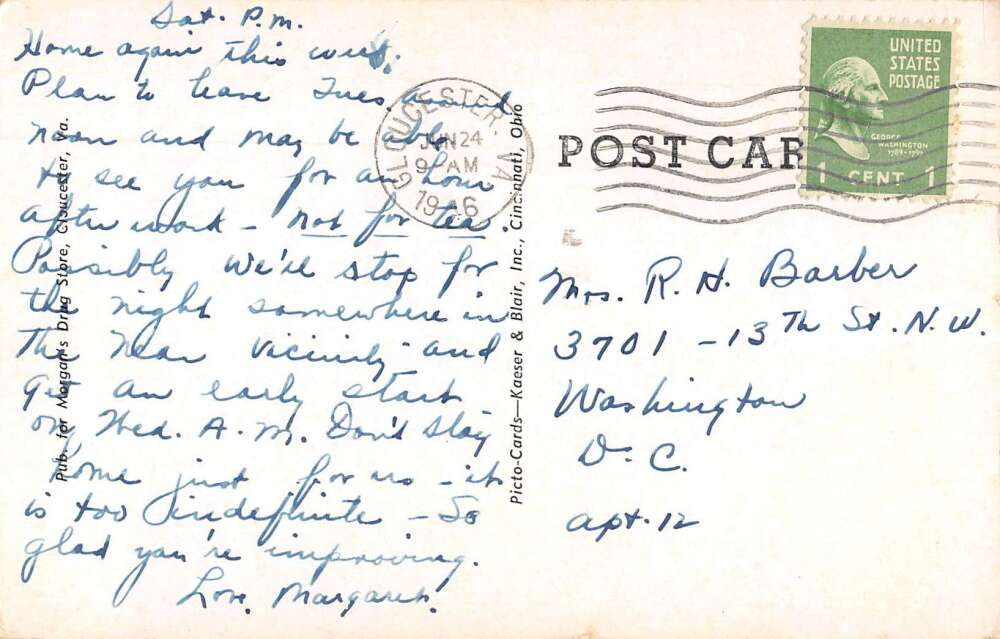 Sat. P.m.
Home again this week.
Plan to leave Tues. around
noon and may be able
to see you for an hour
after work - not for tea.
Possibly we'll stop for
the night somewhere in
the near vicinity and
get an early start
on Wed. A.M. Don't stay
home just for us - it
is too indefinite - So
glad you're improving.
Love, Margaret.
Pub. for Morgan's Drug Store, Gloucester, Va.
Picto-Cards—Kaeser & Blair, Inc., Cincinnati, Ohio
GLOUCESTER, VA.
JUN 24
9 AM
1946
POST CAR
UNITED
STATES
POSTAGE
GEORGE
WASHINGTON
1789-1797
1 CENT 1
Mrs. R. H. Barber
3701 - 13TH St. N.W.
Washington
D. C.
apt. 12